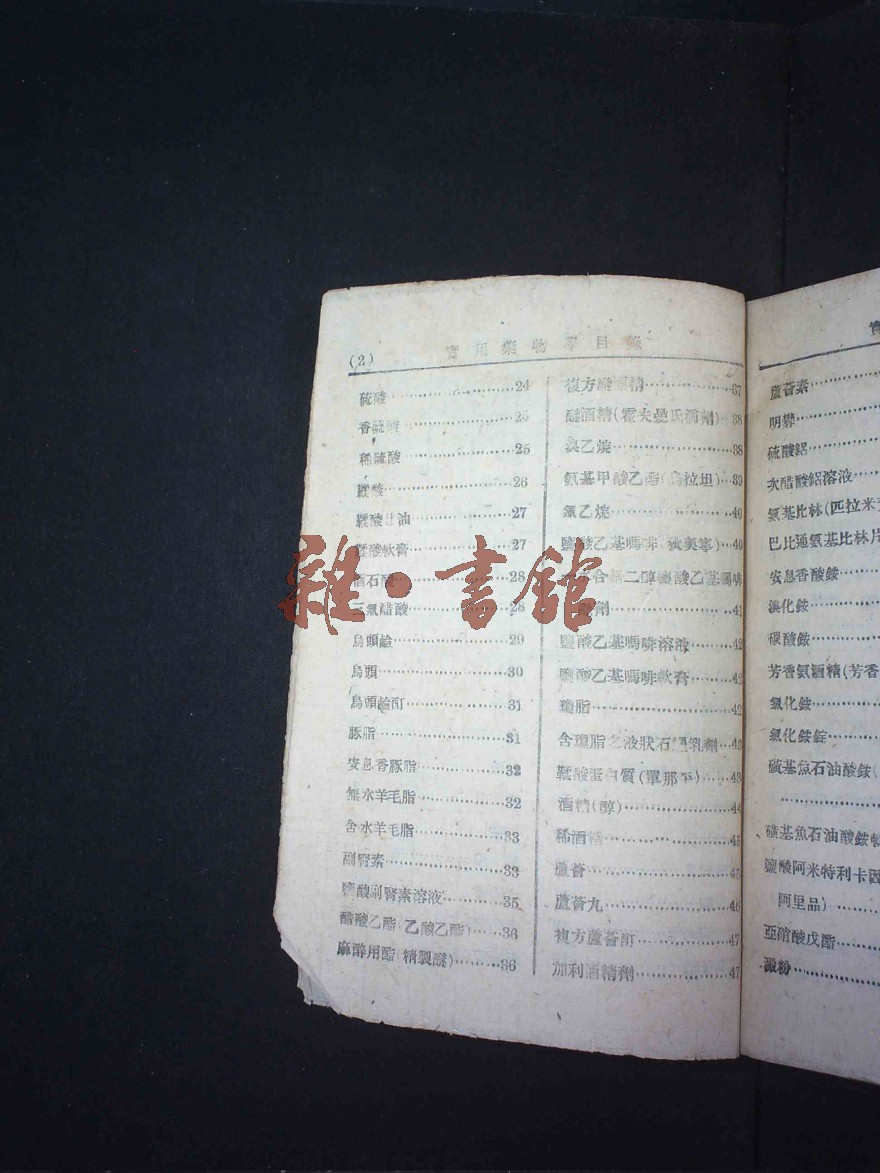 (2)
實用藥物學目錄
硫酸……24
香硫酸……25
稀硫酸……25
鞣酸……26
鞣酸甘油……27
鞣酸軟膏……27
酒石酸……28
三氯醋酸……28
烏頭鹼……29
烏頭……30
烏頭鹼酊……31
豚脂……31
安息香豚脂……32
無水羊毛脂……32
含水羊毛脂……33
副腎素……33
鹽酸副腎素溶液……35
醋酸乙酯(乙酸乙酯)……36
麻醉用酯(精製醚)……36
複方醚酒精……37
醚酒精(霍夫曼氏酒劑)…38
溴乙烷……38
氨基甲酸乙酯(烏拉坦)…39
氯乙烷……40
鹽酸乙基嗎啡(狄奧寧)…40
合 二醇鹽酸乙基嗎啡
劑……41
鹽酸乙基嗎啡溶液……42
鹽酸乙基嗎啡軟膏……42
瓊脂……42
含瓊脂之液狀石蠟乳劑…43
鞣酸蛋白質(單那平)…43
酒精(醇)……44
稀酒精……45
蘆薈……45
蘆薈丸……46
複方蘆薈酊……47
加利酒精劑……47
實
蘆薈素……
明礬……
硫酸鋁……
次醋酸鋁溶液……
氨基比林(匹拉米
巴比通氨基比林片
安息香酸銨……
溴化銨……
碳酸銨……
芳香氨酒精(芳香
氯化銨……
氯化銨錠……
磺基魚石油酸銨(
……
磺基魚石油酸銨軟
鹽酸阿米特利卡因
阿里品)……
亞硝酸戊酯……
澱粉……
雜·書館